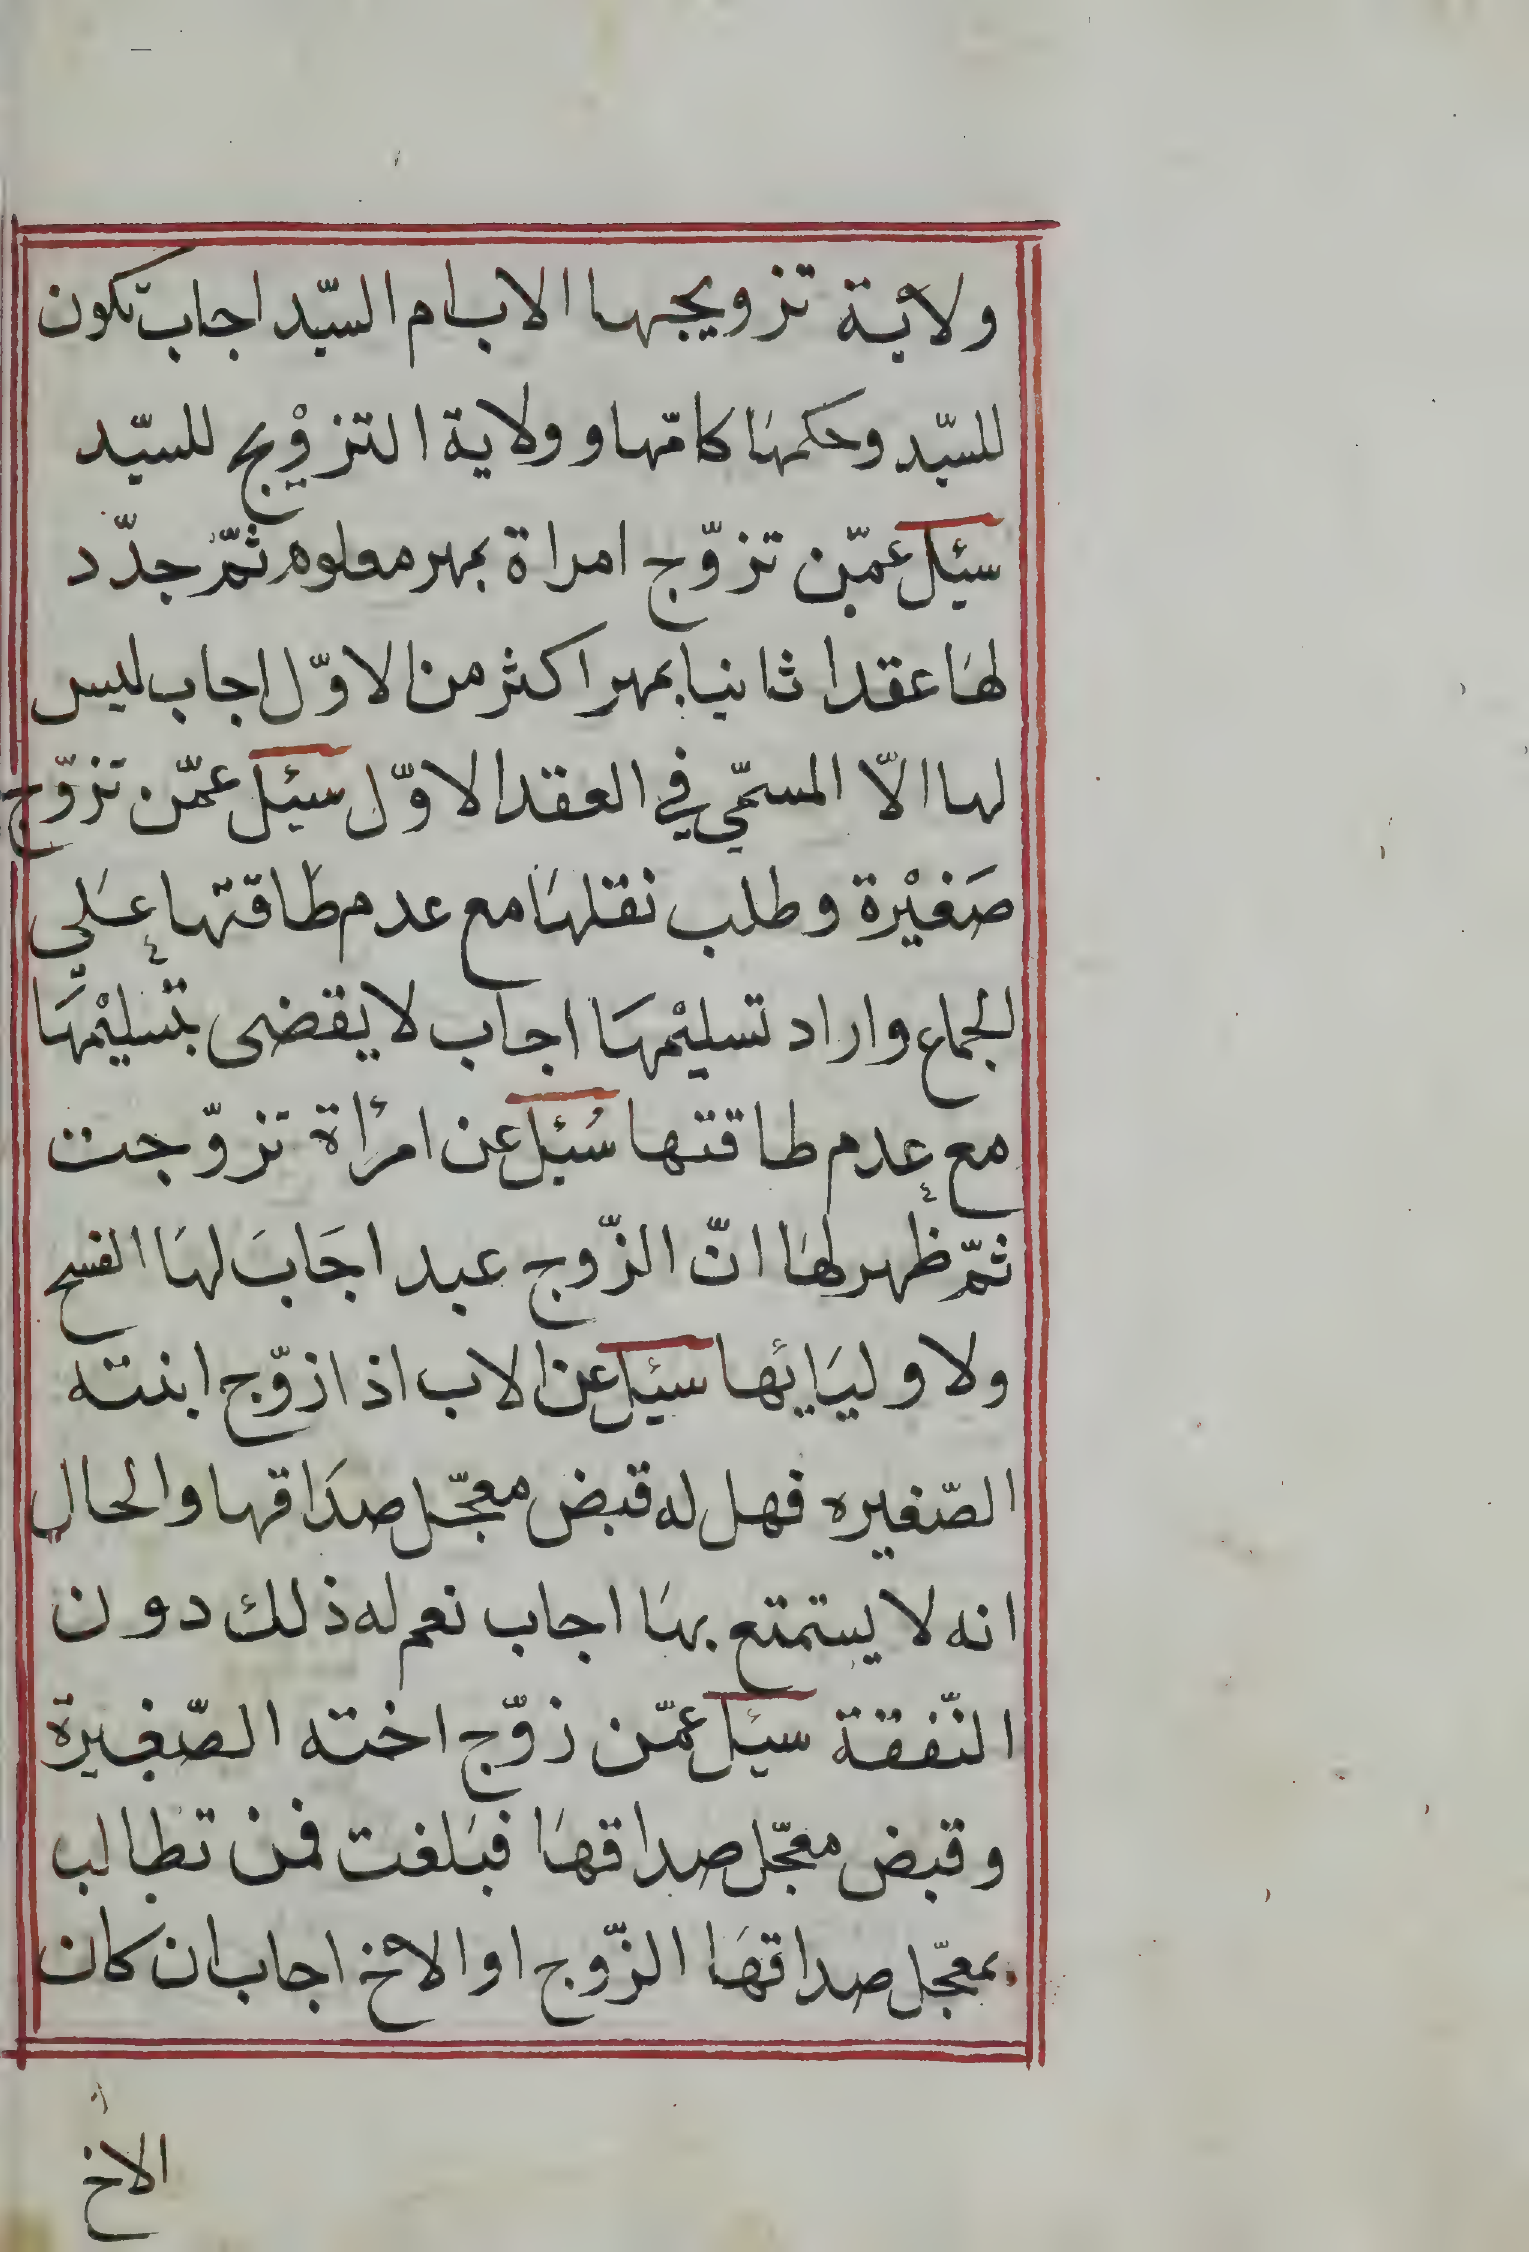 ولاية تزويجها الاب ام السيّد اجاب تكون
للسيّد وحكمها كامّها وولاية التزوْيج للسيّد
سئل عمّن تزوّج امراة بمهر معلوم ثمّ جدّد
لهَا عقدا ثانيا بمهر اكثر من الاوّل اجاب ليس
لها الاّ المسمّي في العقد الاوّل سئل عمّن تزوّج
صَغيْرة وطلب نقلهَا مع عدم طاقتها عَلي
الجماع واراد تسليْمهَا اجاب لا يقضى بتسليْمهَا
مع عدم طاقتها سُئل عن امرأة تزوّجت
ثمّ ظهر لهَا انّ الزّوج عبد اجَابَ لهَا الفسح
ولاوليَائها سئل عن الاب اذا زوّج ابنته
الصّغيره فهل له قبض معجّل صدَاقها والحال
انه لا يستمتع بهَا اجاب نعم له ذلك دون
النّفقة سئل عمّن زوّج اخته الصّغيرة
وقبض معجّل صداقهَا فبَلغت فمن تطالب
بمعجّل صداقهَا الزّوج او الاخ اجاب ان كان
الاخ